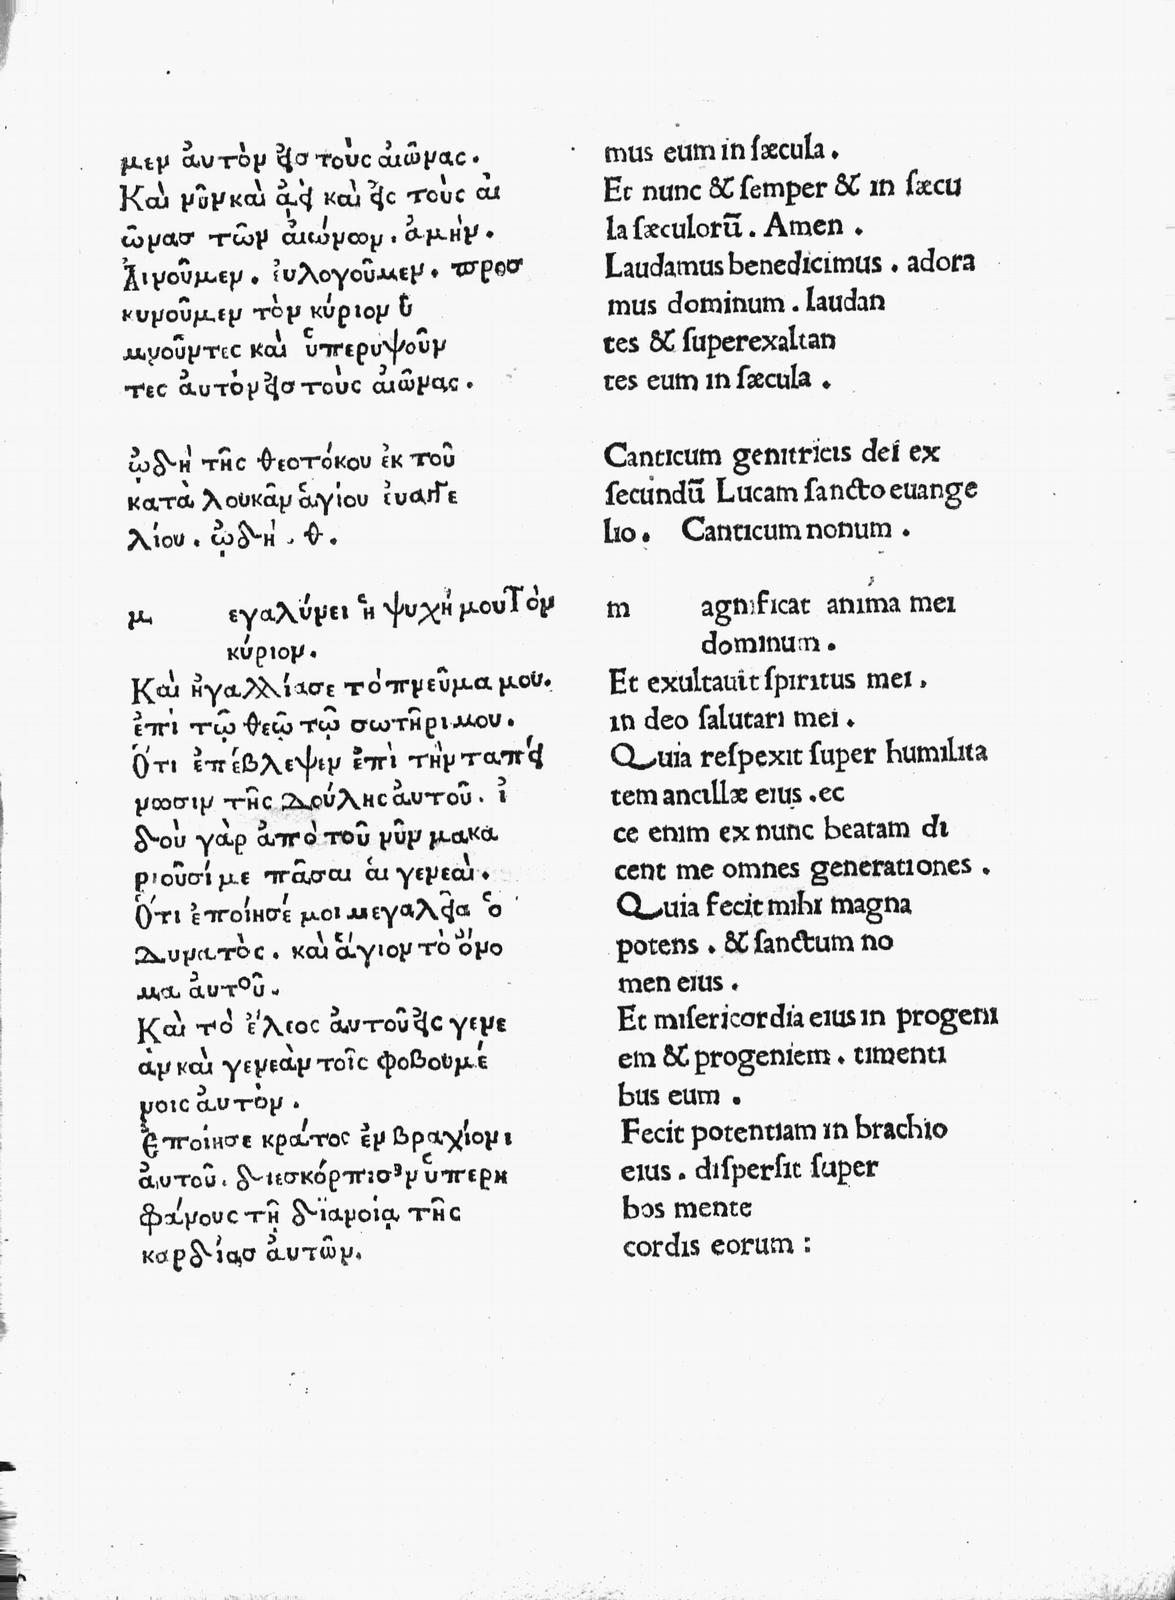 μεν ἀυτὸν εἰσ τοὺς ἀιῶνας.
Καὶ νῦν καὶ ἀεὶ καὶ εἰς τοὺς ἀι
ῶνασ τῶν ἀιώνων. ἀμήν.
Ἀινοῦμεν. ἐυλογοῦμεν. προσ
κυνοῦμεν τὸν κύριον ὑ
μνοῦντες καὶ ὑπερυψοῦν
τες ἀυτὸν εἰσ τοὺς ἀιῶνας.
ᾠδὴ τῆς θεοτόκου ἐκ τοῦ
κατὰ λουκᾶν ἁγίου ἐυαγγε
λίου. ᾠδὴ. θ.
μ εγαλύνει ἡ ψυχή μου τὸν
κύριον.
Καὶ ἠγαλλίασε τὸ πνεῦμα μου.
ἐπὶ τῷ θεῷ τῷ σωτῆρι μου.
Ὅτι ἐπέβλεψεν ἐπὶ τὴν ταπεί
νωσιν τῆς δούλης ἀυτοῦ. ἰ
δοὺ γὰρ ἀπὸ τοῦ νῦν μακα
ριοῦσί με πᾶσαι ἁι γενεαὶ.
Ὅτι ἐποίησέ μοι μεγαλεῖα ὁ
δυνατὸς. καὶ ἅγιον τὸ ὄνο
μα ἀυτοῦ.
Καὶ τὸ ἔλεος ἀυτοῦ εἰς γενε
ὰν καὶ γενεὰν τοῖς φοβουμέ
νοις ἀυτὸν.
Ἐποίησε κράτος ἐν βραχίονι
ἀυτοῦ. διεσκόρπισεν ὑπερη
φάνους τῇ διανοίᾳ τῆς
καρδίασ ἀυτῶν.
mus eum in ſæcula.
Et nunc & ſemper & in ſæcu
la ſæculorũ. Amen.
Laudamus benedicimus. adora
mus dominum. laudan
tes & ſuperexaltan
tes eum in ſæcula.
Canticum genitricis dei ex
ſecundũ Lucam ſancto euange
lio. Canticum nonum.
m agnificat anima mei
dominum.
Et exultauit ſpiritus mei.
in deo ſalutari mei.
Quia reſpexit ſuper humilita
tem ancillæ eius. ec
ce enim ex nunc beatam di
cent me omnes generationes.
Quia fecit mihi magna
potens. & ſanctum no
men eius.
Et miſericordia eius in progeni
em & progeniem. timenti
bus eum.
Fecit potentiam in brachio
eius. diſperſit ſuper
bos mente
cordis eorum: